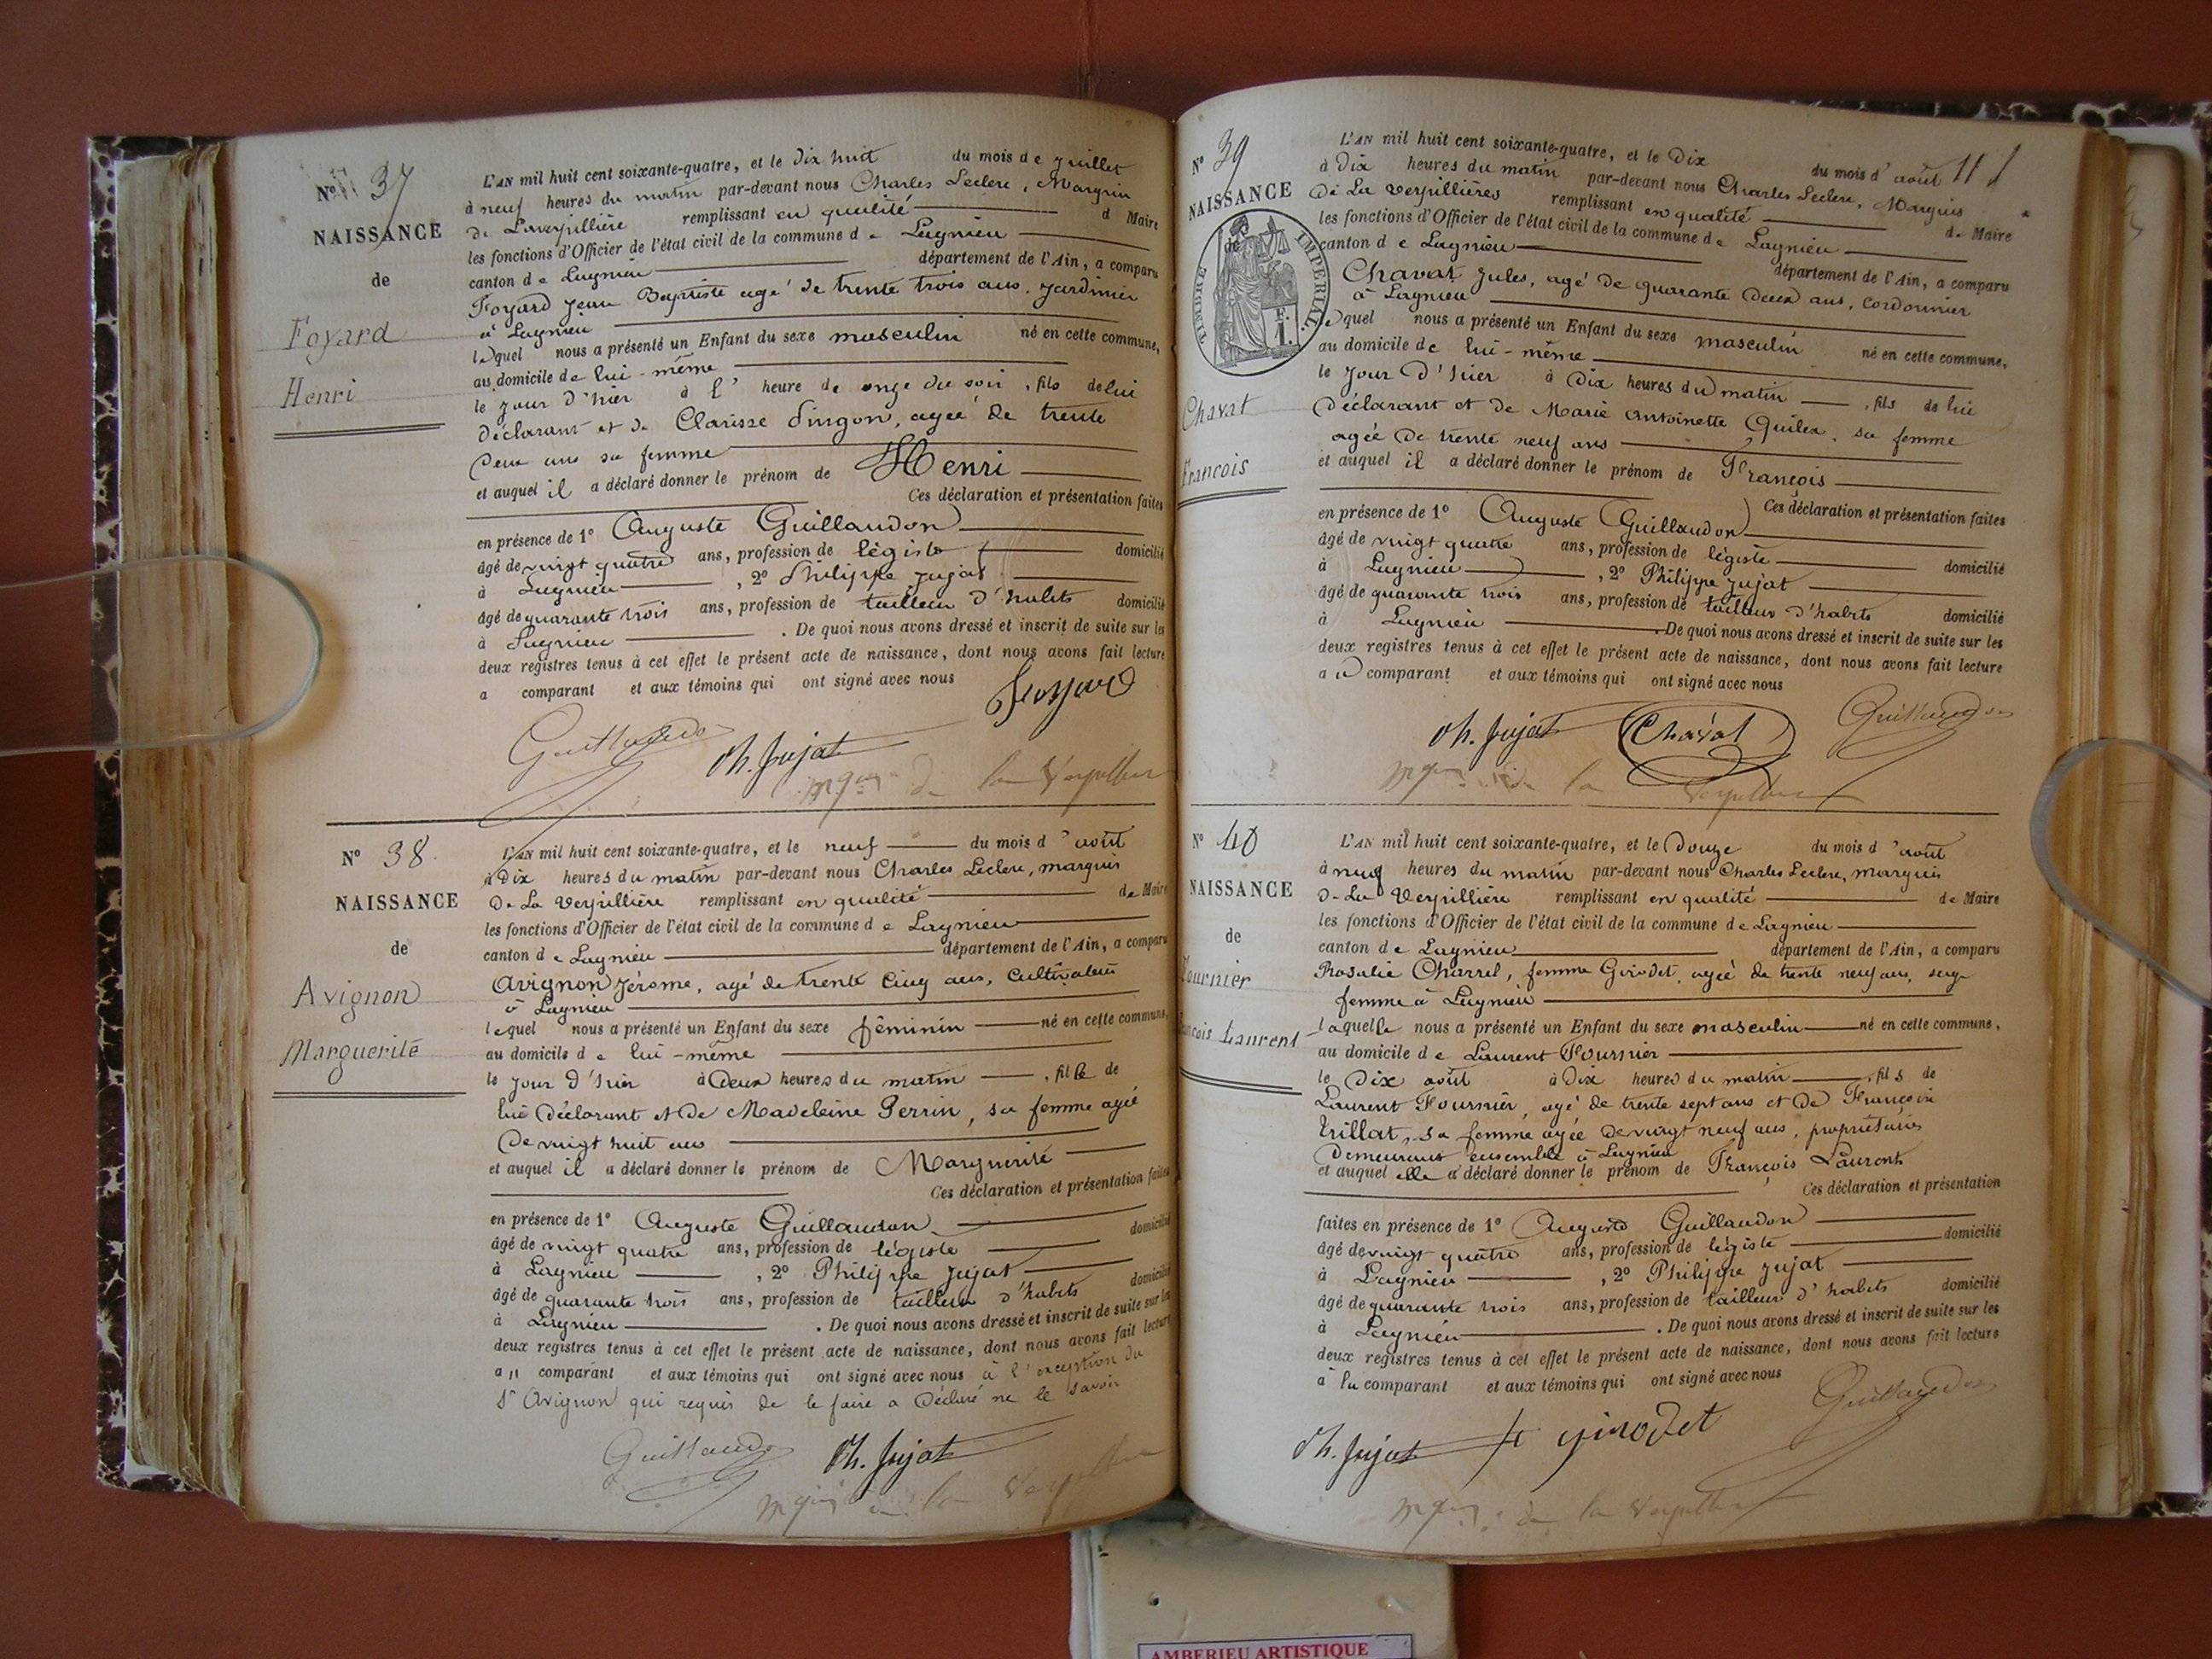 N° 37
NAISSANCE
de
Foyard
Henri
L'AN mil huit cent soixante-quatre, et le Dix huit du mois de Juillet
à neuf heures du matin par-devant nous Charles Leclerc, Marquis
de Laverpillière remplissant en qualité d Maire
les fonctions d'Officier de l'état civil de la commune de Lagnieu
canton de Lagnieu département de l'Ain, a comparu
Foyard Jean Baptiste agé de trente trois ans, Jardinier
à Lagnieu
lequel nous a présenté un Enfant du sexe masculin né en cette commune,
au domicile de lui-même
le jour d'hier à l' heure de onze du soir, fils de lui
déclarant et de Clarisse agée de trente
Deux ans sa femme
et auquel il a déclaré donner le prénom de Henri
Ces déclaration et présentation faites
en présence de 1° Auguste Guillaudon
âgé de vingt quatre ans, profession de légiste domicilié
à Lagnieu, 2° Philippe Jujat
âgé de quarante trois ans, profession de tailleur d'habits domicilié
à Lagnieu. De quoi nous avons dressé et inscrit de suite sur les
deux registres tenus à cet effet le présent acte de naissance, dont nous avons fait lecture
a comparant et aux témoins qui ont signé avec nous
Foyard
Guillaudon Ph. Jujat
Mquis de la Verpillière
N° 38.
NAISSANCE
de
Avignon
Marguerite
L'AN mil huit cent soixante-quatre, et le neuf du mois d'août
à Dix heures du matin par-devant nous Charles Leclerc, marquis
De La Verpillière remplissant en qualité de Maire
les fonctions d'Officier de l'état civil de la commune de Lagnieu
canton de Lagnieu département de l'Ain, a comparu
Avignon Jérome, agé de trente Cinq ans, Cultivateur
à Lagnieu
lequel nous a présenté un Enfant du sexe féminin né en cette commune,
au domicile de lui-même
le jour d'hier à Deux heures du matin, fille de
lui Déclarant et de Madeleine Perrin, sa femme agée
De vingt huit ans
et auquel il a déclaré donner le prénom de Marguerite
Ces déclaration et présentation faites
en présence de 1° Auguste Guillaudon
âgé de vingt quatre ans, profession de légiste domicilié
à Lagnieu, 2° Philippe Jujat
âgé de quarante trois ans, profession de tailleur d'habits domicilié
à Lagnieu. De quoi nous avons dressé et inscrit de suite sur les
deux registres tenus à cet effet le présent acte de naissance, dont nous avons fait lecture
a u comparant et aux témoins qui ont signé avec nous à l'exception du
Sr Avignon qui requis de le faire a Déclaré ne le savoir
Guillaudon Ph. Jujat
Mquis de la Verpillière
N° 39
NAISSANCE
de
TIMBRE IMPERIAL
1 F.
Chavat
François
L'AN mil huit cent soixante-quatre, et le Dix du mois d'août 11
à Dix heures du matin par-devant nous Charles Leclerc, Marquis
De La Verpillières remplissant en qualité de Maire
les fonctions d'Officier de l'état civil de la commune de Lagnieu
canton de Lagnieu département de l'Ain, a comparu
Chavat Jules, agé de quarante Deux ans, Cordonnier
à Lagnieu
lequel nous a présenté un Enfant du sexe masculin né en cette commune,
au domicile de lui-même
le Jour D'hier à Dix heures du matin, fils de lui
Déclarant et de Marie Antoinette sa femme
agée de trente neuf ans
et auquel il a déclaré donner le prénom de François
Ces déclaration et présentation faites
en présence de 1° Auguste Guillaudon
âgé de vingt quatre ans, profession de légiste domicilié
à Lagnieu, 2° Philippe Jujat
âgé de quarante trois ans, profession de tailleur d'habits domicilié
à Lagnieu. De quoi nous avons dressé et inscrit de suite sur les
deux registres tenus à cet effet le présent acte de naissance, dont nous avons fait lecture
a u comparant et aux témoins qui ont signé avec nous
Ph. Jujat Chavat Guillaudon
Mquis de la Verpillière
N° 40
NAISSANCE
de
Fournier
François Laurent
L'AN mil huit cent soixante-quatre, et le Douze du mois d'août
à neuf heures du matin par-devant nous Charles Leclerc, marquis
De La Verpillière remplissant en qualité de Maire
les fonctions d'Officier de l'état civil de la commune de Lagnieu
canton de Lagnieu département de l'Ain, a comparu
Rosalie Charrel, femme Girodet, agée de trente neuf ans, sage
femme à Lagnieu
laquelle nous a présenté un Enfant du sexe masculin né en cette commune,
au domicile de Laurent Fournier
le Dix août à Dix heures du matin, fils de
Laurent Fournier, agé de trente sept ans et de Françoise
Trillat, sa femme agée de vingt neuf ans, propriétaires
Demeurant ensemble à Lagnieu
et auquel elle a déclaré donner le prénom de François Laurent
Ces déclaration et présentation
faites en présence de 1° Auguste Guillaudon
âgé de vingt quatre ans, profession de légiste domicilié
à Lagnieu, 2° Philippe Jujat
âgé de quarante trois ans, profession de tailleur d'habits domicilié
à Lagnieu. De quoi nous avons dressé et inscrit de suite sur les
deux registres tenus à cet effet le présent acte de naissance, dont nous avons fait lecture
à la comparant et aux témoins qui ont signé avec nous
Guillaudon
Ph. Jujat fe girodet
Mquis de la Verpillière
AMBERIEU ARTISTIQUE